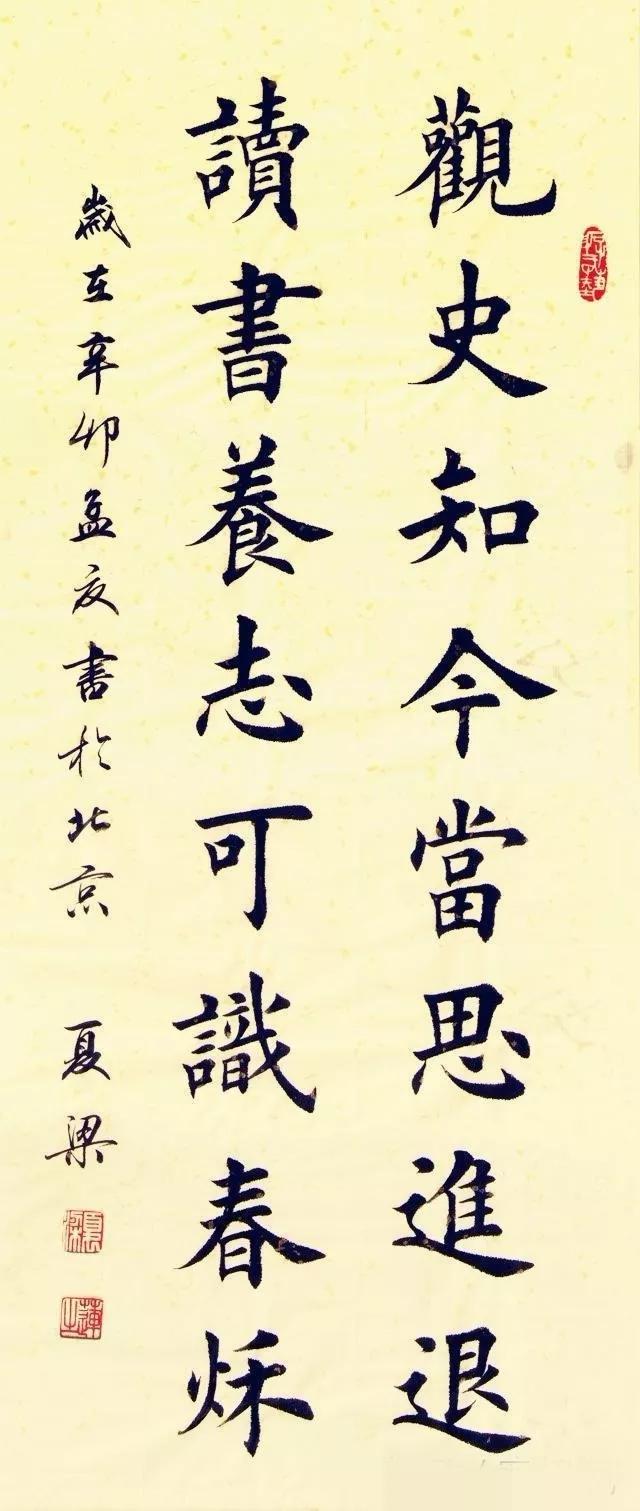 觀史知今當思進退
讀書養志可識春秌
歲在辛卯孟夏書於北京 夏梁
夏梁
蓮之